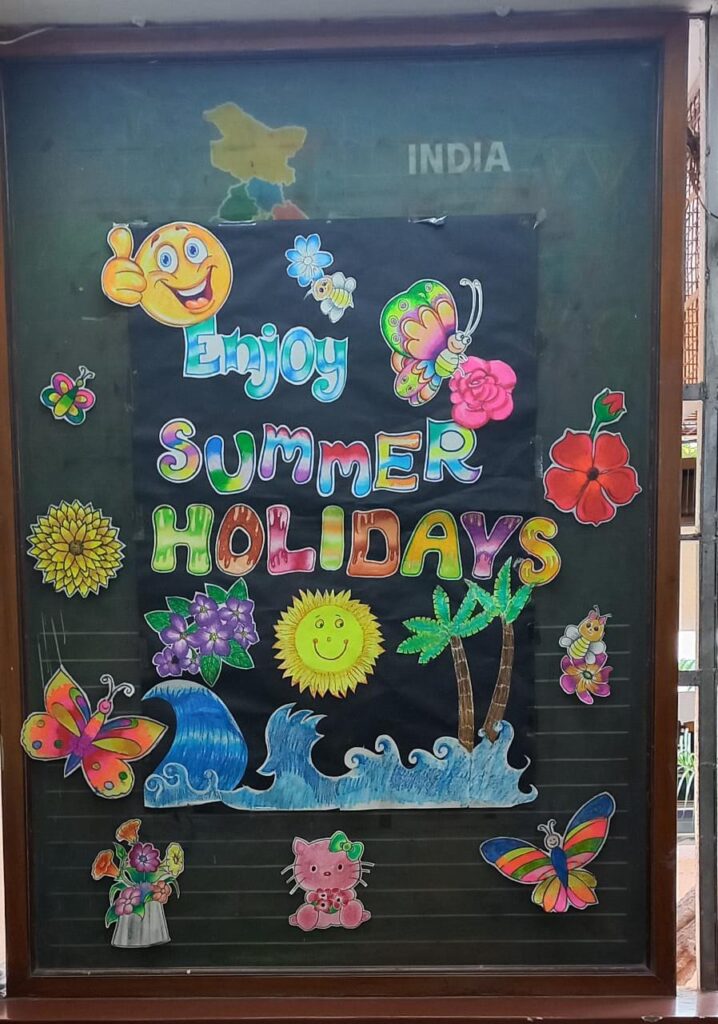 INDIA
Enjoy
SUMMER
HOLIDAYS